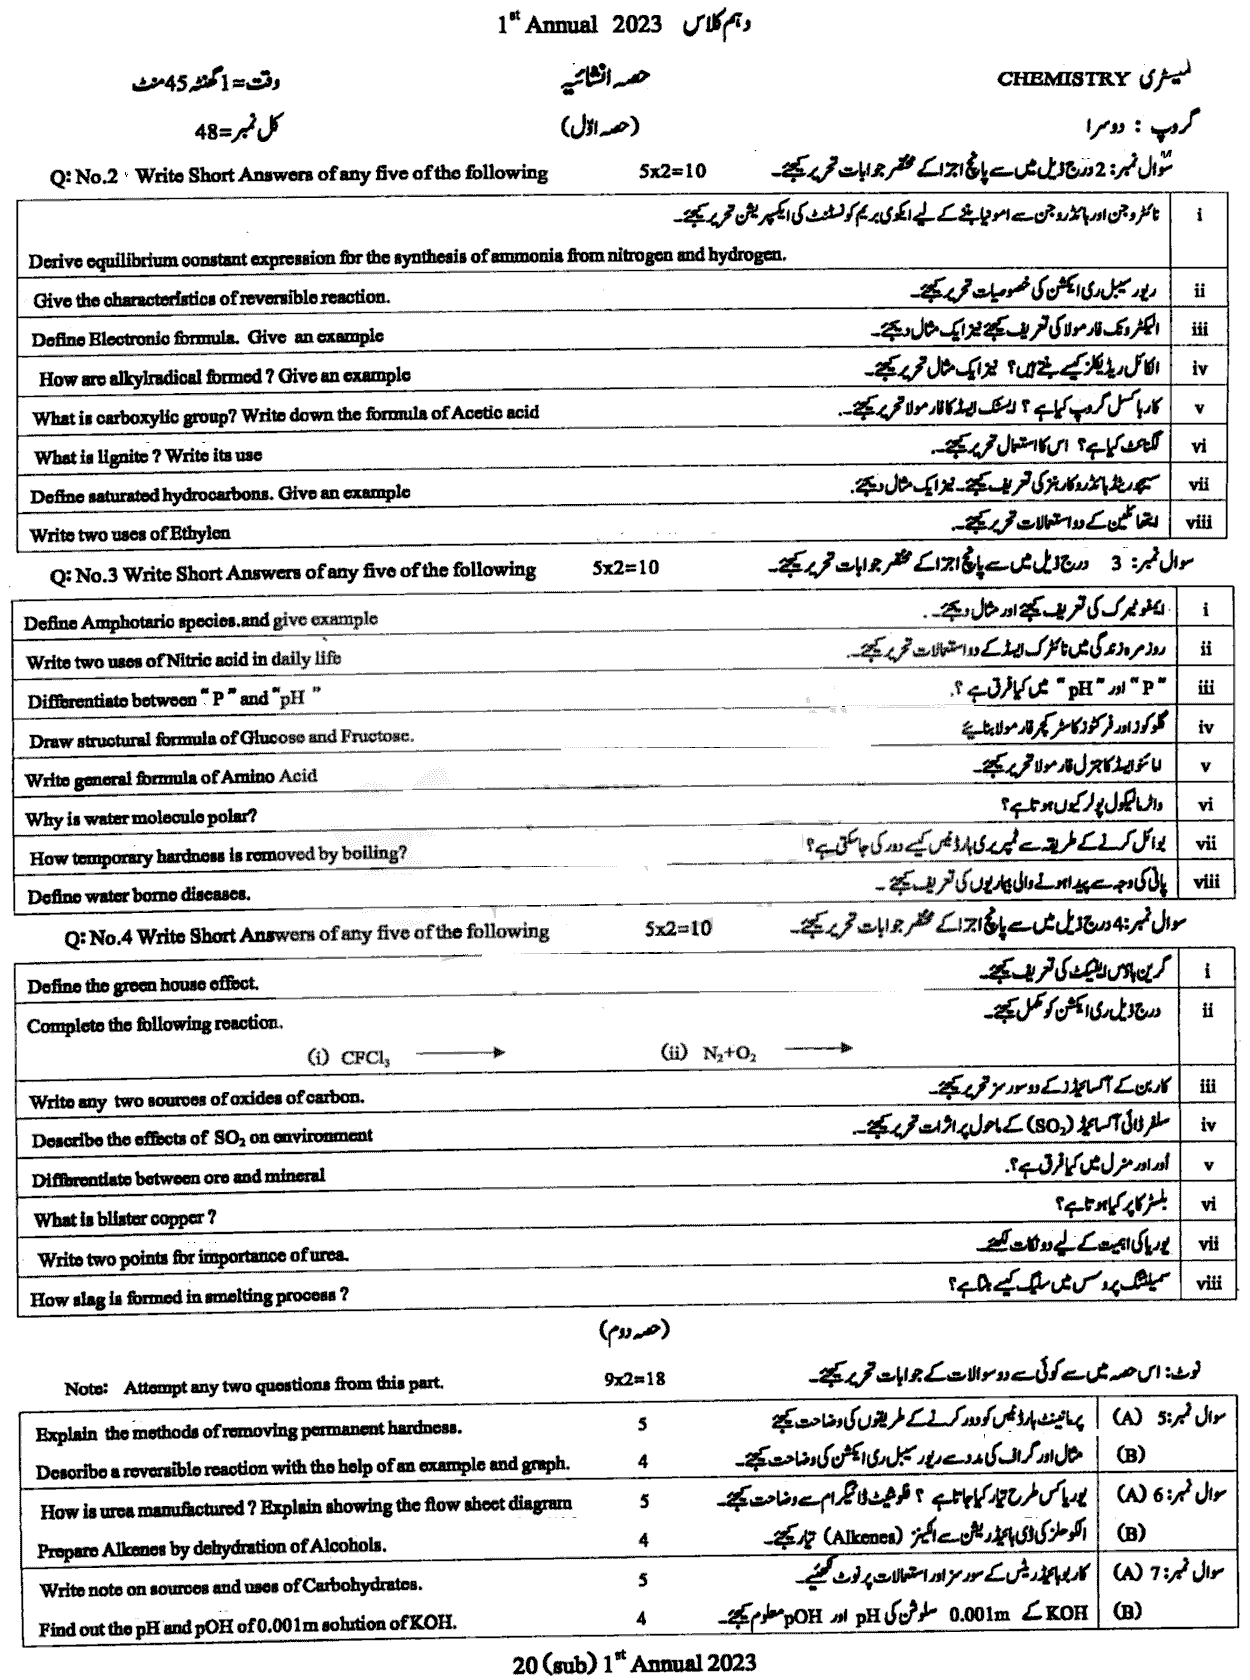 1st Annual 2023 دہم کلاس
کیمسٹری CHEMISTRY حصہ انشائیہ وقت=1گھنٹہ45منٹ
گروپ : دوسرا (حصہ اوّل) کل نمبر=48
Q: No.2 Write Short Answers of any five of the following 5x2=10 سوال نمبر: 2 درج ذیل میں سے پانچ اجزا کے مختصر جوابات تحریر کیجئے۔
i نائٹروجن اور ہائڈروجن سے امونیا بننے کے لیے ایکوی بریم کونسٹنٹ کی ایکسپریشن تحریر کیجئے۔
Derive equilibrium constant expression for the synthesis of ammonia from nitrogen and hydrogen.
Give the characteristics of reversible reaction. ریورسیبل ری ایکشن کی خصوصیات تحریر کیجئے۔ ii
Define Electronic formula. Give an example الیکٹرونک فارمولا کی تعریف کیجئے نیز ایک مثال دیجئے۔ iii
How are alkylradical formed ? Give an example الکائل ریڈیکلز کیسے بنتے ہیں؟ نیز ایک مثال تحریر کیجئے۔ iv
What is carboxylic group? Write down the formula of Acetic acid کارباکسل گروپ کیا ہے ؟ ایسٹک ایسڈ کا فارمولا تحریر کیجئے۔ v
What is lignite ? Write its use لگنائٹ کیا ہے؟ اس کا استعمال تحریر کیجئے۔ vi
Define saturated hydrocarbons. Give an example سیچوریٹڈ ہائڈروکاربنز کی تعریف کیجئے۔ نیز ایک مثال دیجئے۔ vii
Write two uses of Ethylen ایتھائلین کے دو استعمالات تحریر کیجئے۔ viii
Q: No.3 Write Short Answers of any five of the following 5x2=10 سوال نمبر: 3 درج ذیل میں سے پانچ اجزا کے مختصر جوابات تحریر کیجئے۔
Define Amphotaric species.and give example ایمفوٹیرک کی تعریف کیجئے اور مثال دیجئے۔ i
Write two uses of Nitric acid in daily life روزمرہ زندگی میں نائٹرک ایسڈ کے دو استعمالات تحریر کیجئے۔ ii
Differentiate between "P" and "pH" "P" اور "pH" میں کیا فرق ہے ؟ iii
Draw structural formula of Glucose and Fructose. گلوکوز اور فرکٹوز کا سٹرکچر فارمولا بنائیے iv
Write general formula of Amino Acid امائنو ایسڈ کا جنرل فارمولا تحریر کیجئے۔ v
Why is water molecule polar? واٹر مالیکول پولر کیوں ہوتا ہے؟ vi
How temporary hardness is removed by boiling? بوائل کرنے کے طریقہ سے ٹمپریری ہارڈنیس کیسے دور کی جاسکتی ہے؟ vii
Define water borne diseases. پانی کی وجہ سے پیدا ہونے والی بیماریوں کی تعریف کیجئے ۔ viii
Q: No.4 Write Short Answers of any five of the following 5x2=10 سوال نمبر:4 درج ذیل میں سے پانچ اجزا کے مختصر جوابات تحریر کیجئے۔
Define the green house effect. گرین ہاؤس ایفیکٹ کی تعریف کیجئے۔ i
Complete the following reaction. درج ذیل ری ایکشن کو مکمل کیجئے۔ ii
(i) CFCl3 → (ii) N2+O2 →
Write any two sources of oxides of carbon. کاربن کے آکسائیڈز کے دو سورسز تحریر کیجئے۔ iii
Describe the effects of SO2 on environment سلفر ڈائی آکسائیڈ (SO2) کے ماحول پر اثرات تحریر کیجئے۔ iv
Differentiate between ore and mineral اور اور منرل میں کیا فرق ہے؟ v
What is blister copper ? بلسٹر کاپر کیا ہوتا ہے؟ vi
Write two points for importance of urea. یوریا کی اہمیت کے لیے دو نکات لکھئے۔ vii
How slag is formed in smelting process ? سمیلٹنگ پروسس میں سلیگ کیسے بنتا ہے؟ viii
(حصہ دوم)
Note: Attempt any two questions from this part. 9x2=18 نوٹ: اس حصہ میں سے کوئی سے دو سوالات کے جوابات تحریر کیجئے۔
Explain the methods of removing permanent hardness. 5 پرمانینٹ ہارڈنیس کو دور کرنے کے طریقوں کی وضاحت کیجئے سوال نمبر:5 (A)
Describe a reversible reaction with the help of an example and graph. 4 مثال اور گراف کی مدد سے ریورسیبل ری ایکشن کی وضاحت کیجئے۔ (B)
How is urea manufactured ? Explain showing the flow sheet diagram 5 یوریا کس طرح تیار کیا جاتا ہے ؟ فلوشیٹ ڈائیگرام سے وضاحت کیجئے۔ سوال نمبر:6 (A)
Prepare Alkenes by dehydration of Alcohols. 4 الکوحلز کی ڈی ہائیڈریشن سے الکینز (Alkenes) تیار کیجئے۔ (B)
Write note on sources and uses of Carbohydrates. 5 کاربوہائیڈریٹس کے سورسز اور استعمالات پر نوٹ لکھئیے۔ سوال نمبر:7 (A)
Find out the pH and pOH of 0.001m solution of KOH. 4 KOH کے 0.001m سلوشن کی pH اور pOH معلوم کیجئے۔ (B)
20 (sub) 1st Annual 2023